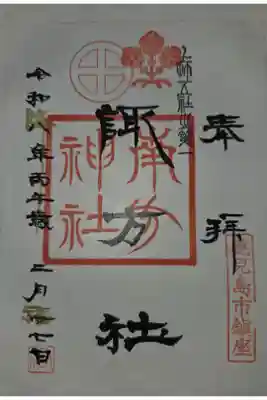 奉拝
鹿児島市鎮座
諏方社
南方
神社
令和八年丙午歳 二月廿七日